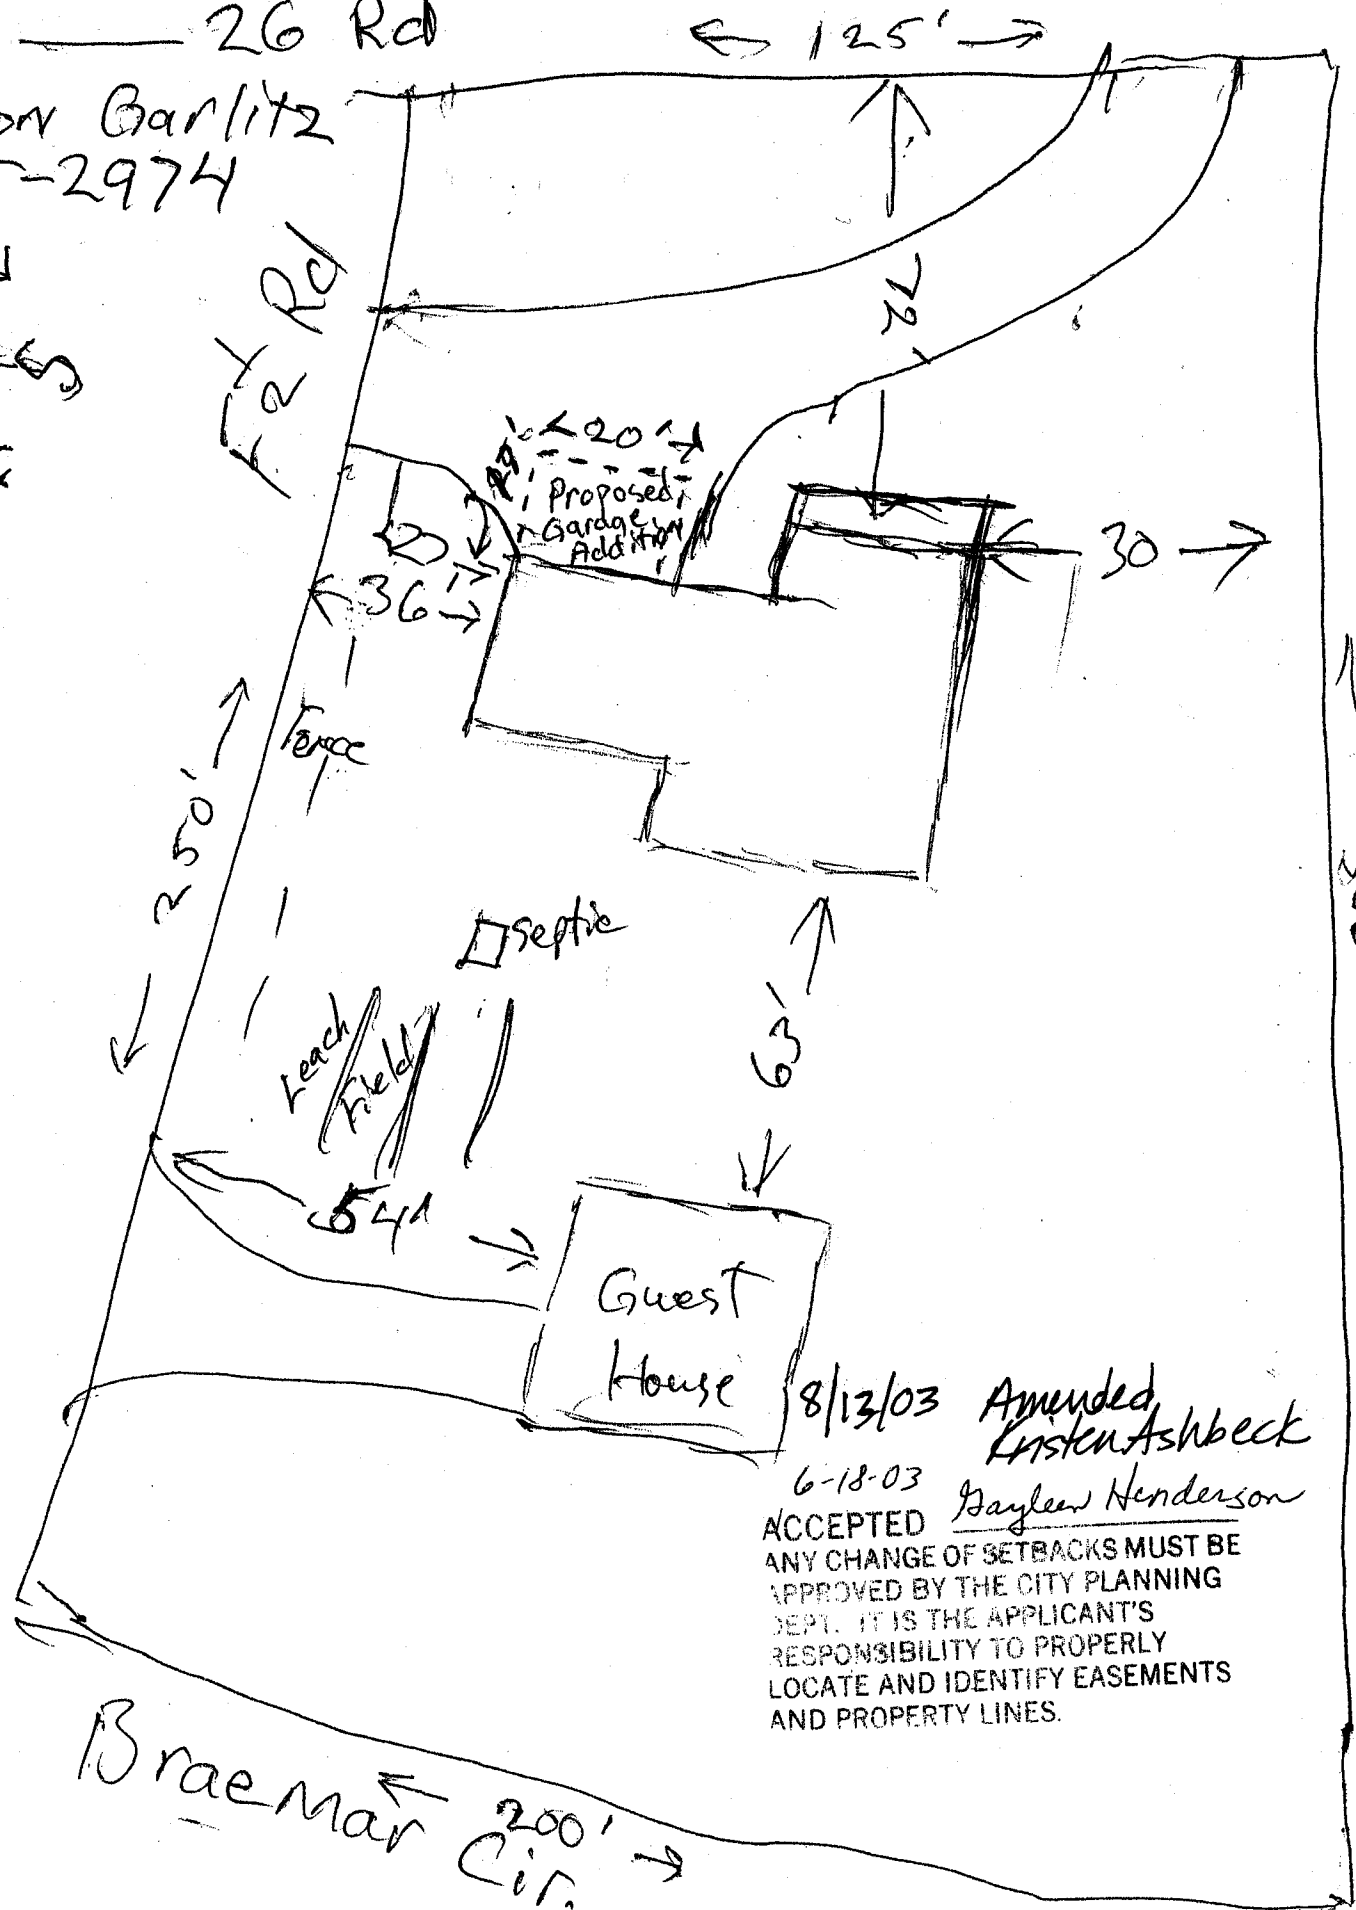 26 Rd
125'
Garlitz
-2974
Rd
20'
Proposed
Garage
Addition
30
36'
Fence
250'
septic
Leach
Field
63'
54'
Guest
House
8/13/03 Amended
Kristen Ashbeck
6-18-03
ACCEPTED Gayleen Henderson
ANY CHANGE OF SETBACKS MUST BE
APPROVED BY THE CITY PLANNING
DEPT. IT IS THE APPLICANT'S
RESPONSIBILITY TO PROPERLY
LOCATE AND IDENTIFY EASEMENTS
AND PROPERTY LINES.
Braemar Cir.
200'